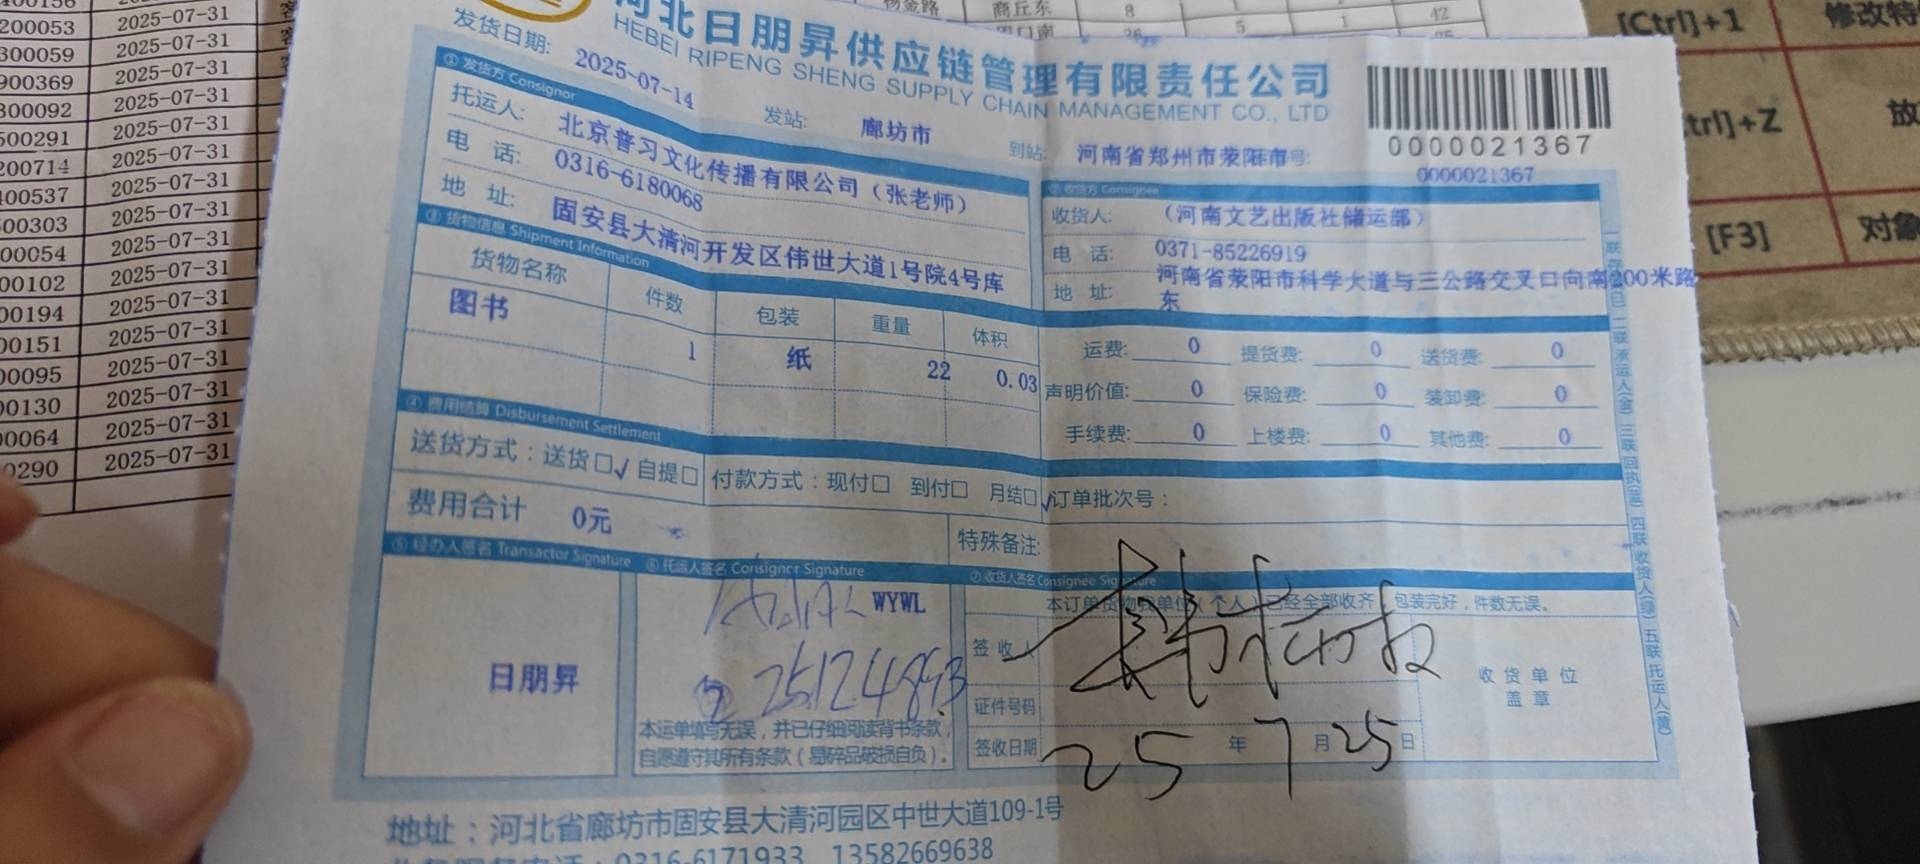 河北日朋昇供应链管理有限责任公司
HEBEI RIPENG SHENG SUPPLY CHAIN MANAGEMENT CO., LTD
0000021367
发货日期: 2025-07-14
发站: 廊坊市
到站: 河南省郑州市荥阳市
号:
0000021367
① 发货方 Consignor
托运人: 北京普习文化传播有限公司（张老师）
电 话: 0316-6180068
地 址: 固安县大清河开发区伟世大道1号院4号库
② 收货方 Consignee
收货人: （河南文艺出版社储运部）
电 话: 0371-85226919
地 址: 河南省荥阳市科学大道与三公路交叉口向南200米路
东
③ 货物信息 Shipment Information
货物名称 件数 包装 重量 体积
图书 1 纸 22 0.03
运费: 0 提货费: 0 送货费: 0
声明价值: 0 保险费: 0 装卸费: 0
手续费: 0 上楼费: 0 其他费: 0
④ 费用结算 Disbursement Settlement
送货方式：送货□√ 自提□ 付款方式：现付□ 到付□ 月结□√ 订单批次号：
费用合计 0元
特殊备注:
⑤ 经办人签名 Transactor Signature
日朋昇
⑥ 托运人签名 Consignor Signature
WYWL
本运单填写无误，并已仔细阅读背书条款，
自愿遵守其所有条款（易碎品破损自负）。
⑦ 收货人签名 Consignee Signature
本订单货物我单位（个人）已经全部收齐，包装完好，件数无误。
签收人
证件号码
签收日期 25 年 7 月 25 日
收货单位
盖章
二联承运人(金) 三联回执(蓝) 四联收货人(绿) 五联托运人(黄)
地址：河北省廊坊市固安县大清河园区中世大道109-1号
0316-6171933 13582669638
200053 2025-07-31
300059 2025-07-31
900369 2025-07-31
300092 2025-07-31
500291 2025-07-31
200714 2025-07-31
400537 2025-07-31
00303 2025-07-31
00054 2025-07-31
00102 2025-07-31
00194 2025-07-31
00151 2025-07-31
00095 2025-07-31
00130 2025-07-31
00064 2025-07-31
0290 2025-07-31
杨金路 商丘东 8
5 1 42
[Ctrl]+1 修改特
trl]+Z 放
[F3] 对象